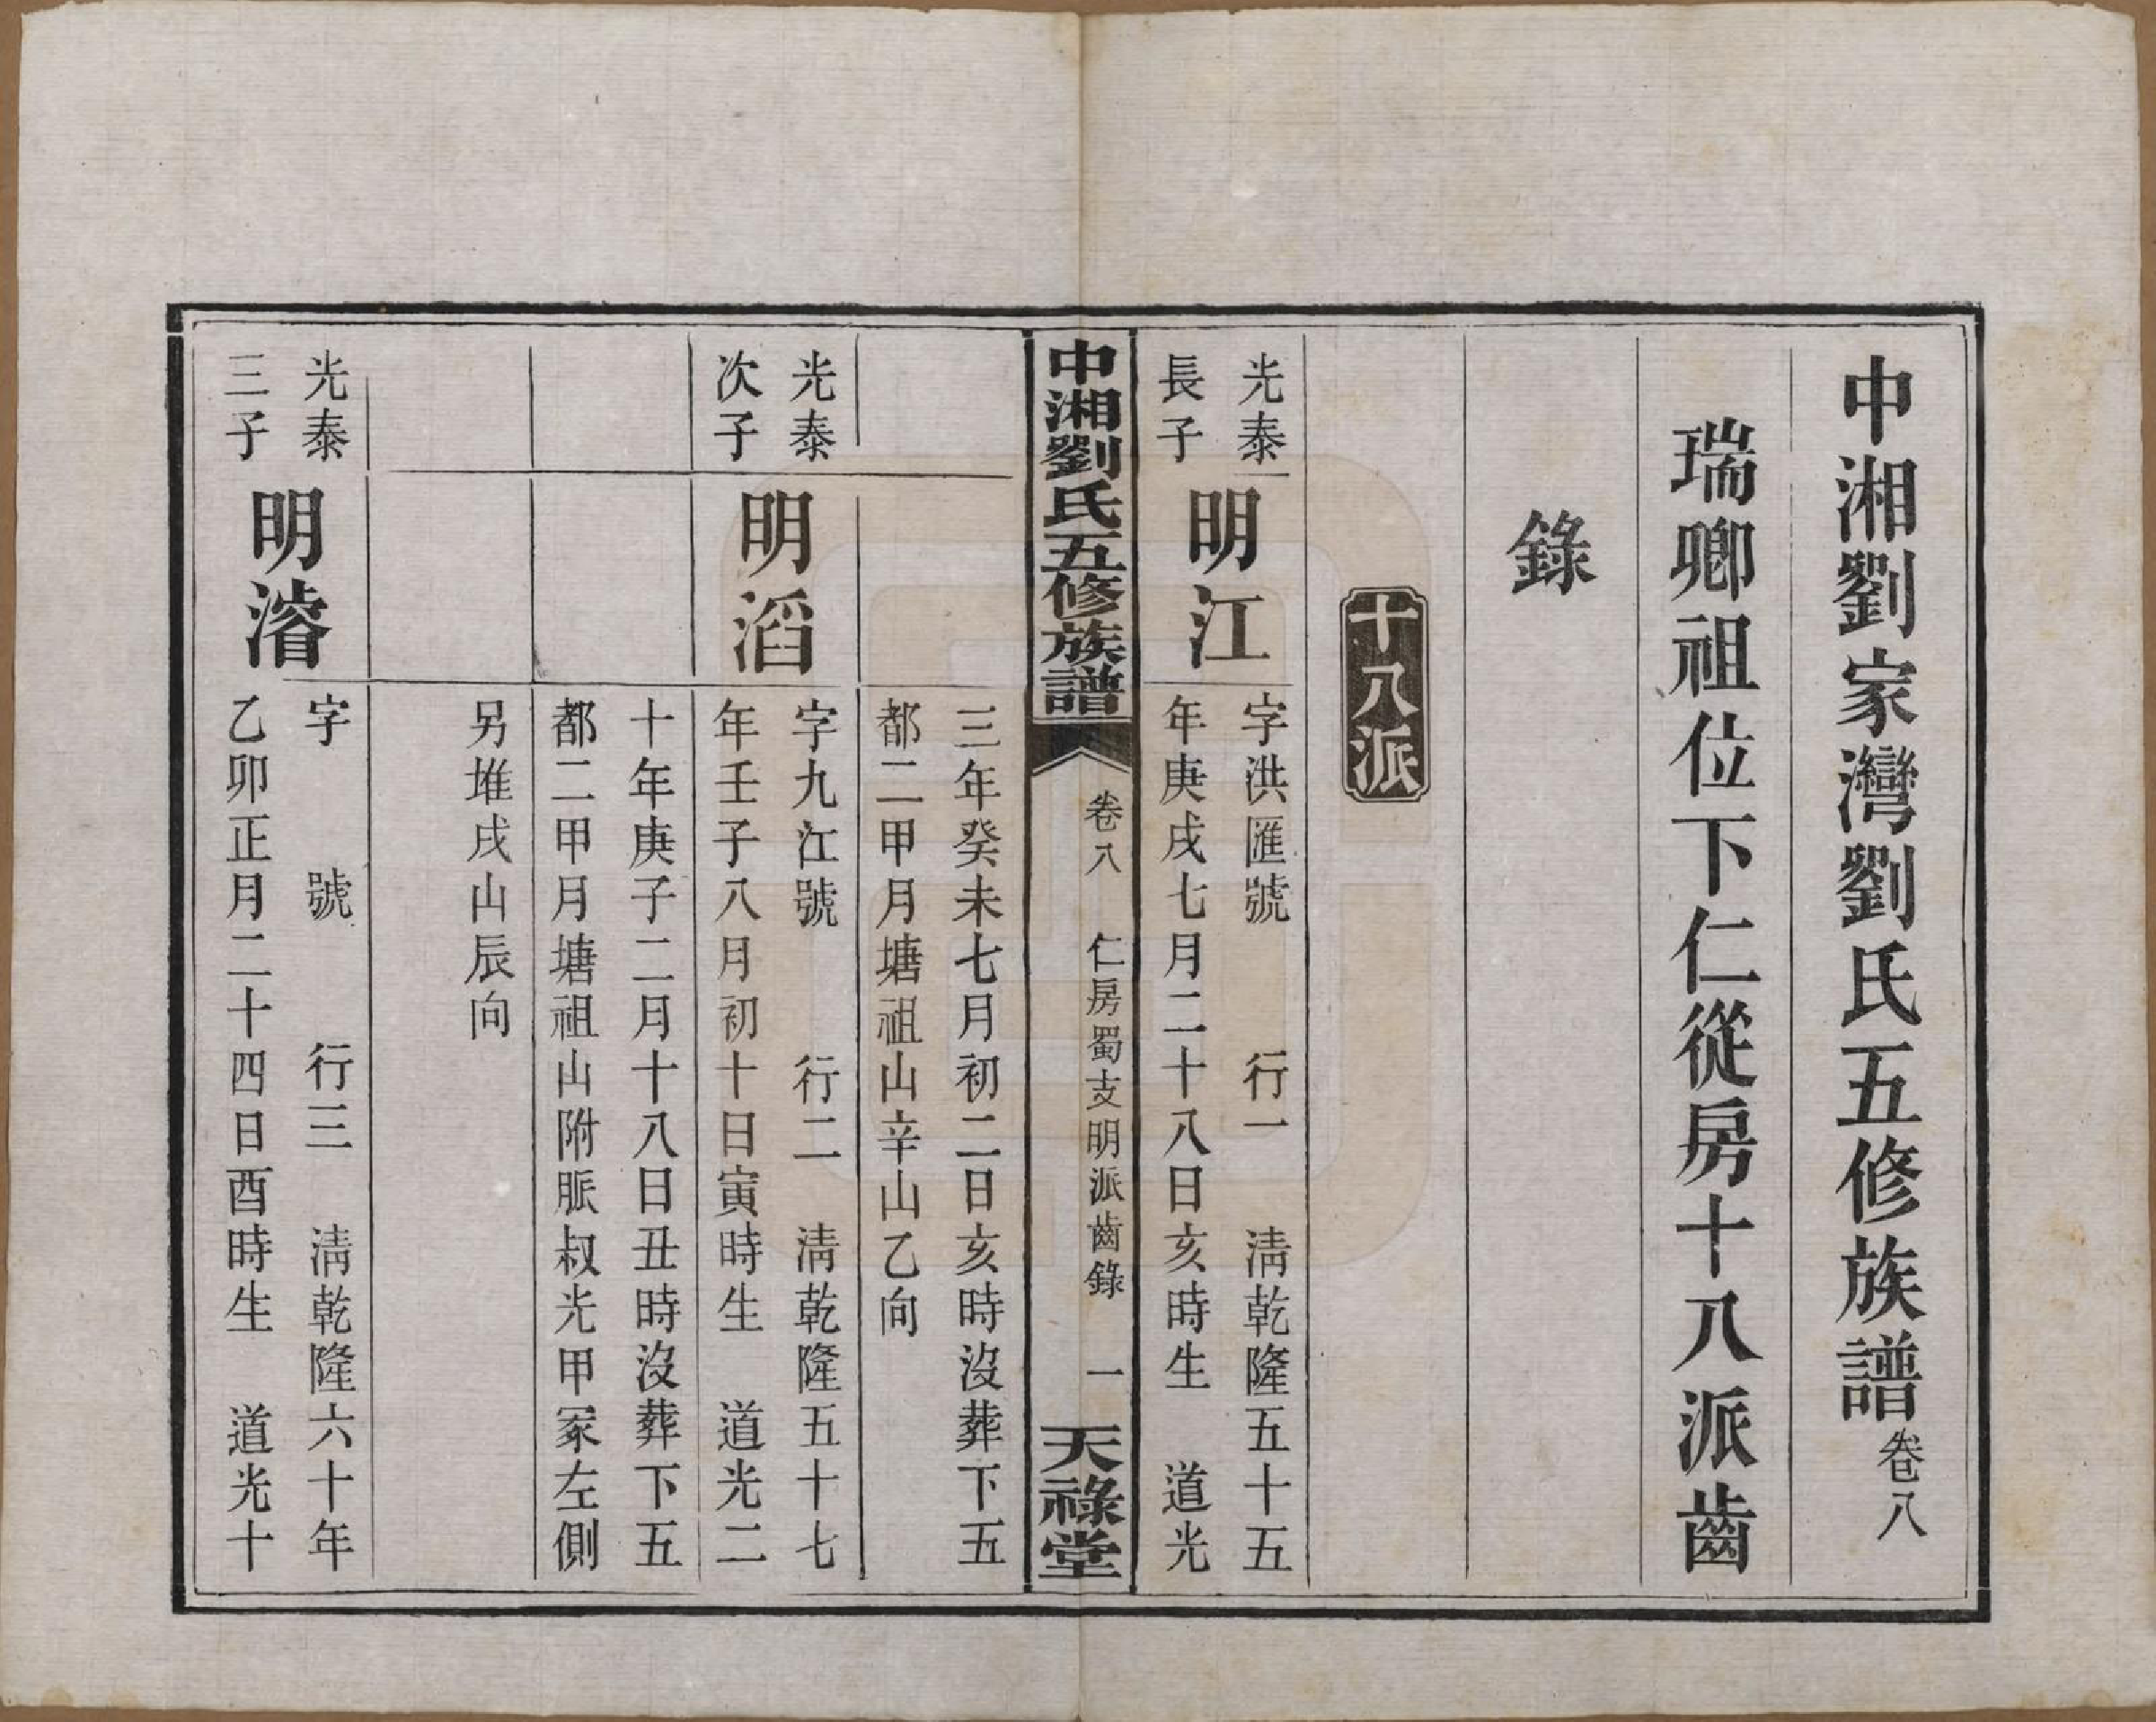 中湘劉家灣劉氏五修族譜卷八
瑞卿祖位下仁從房十八派齒
錄
十八派
光泰
長子
明江
字洪匯號 行一 清乾隆五十五
年庚戌七月二十八日亥時生 道光
中湘劉氏五修族譜 卷八 仁房蜀支明派齒錄 一 天祿堂
三年癸未七月初二日亥時沒葬下五
都二甲月塘祖山辛山乙向
光泰
次子
明滔
字九江號 行二 清乾隆五十七
年壬子八月初十日寅時生 道光二
十年庚子二月十八日丑時沒葬下五
都二甲月塘祖山附脈叔光甲冢左側
另堆戌山辰向
光泰
三子
明濬
字 號 行三 清乾隆六十年
乙卯正月二十四日酉時生 道光十